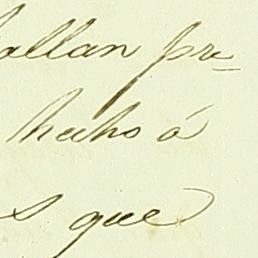 allan pre-
hecho á
s que